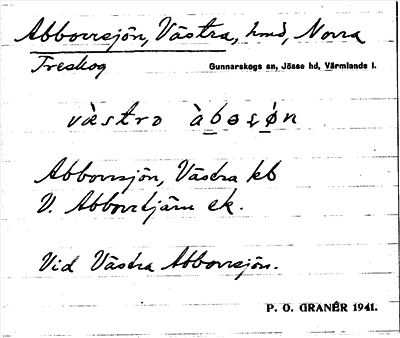 Abborrsjön, Västra, hmd, Norra
Treskog Gunnarskogs sn, Jösse hd, Värmlands l.
västrə àbosøn
Abborrsjön, Västra kb
V. Abborrtjärn ek.
Vid Västra Abborrsjön.
P. O. GRANÉR 1941.